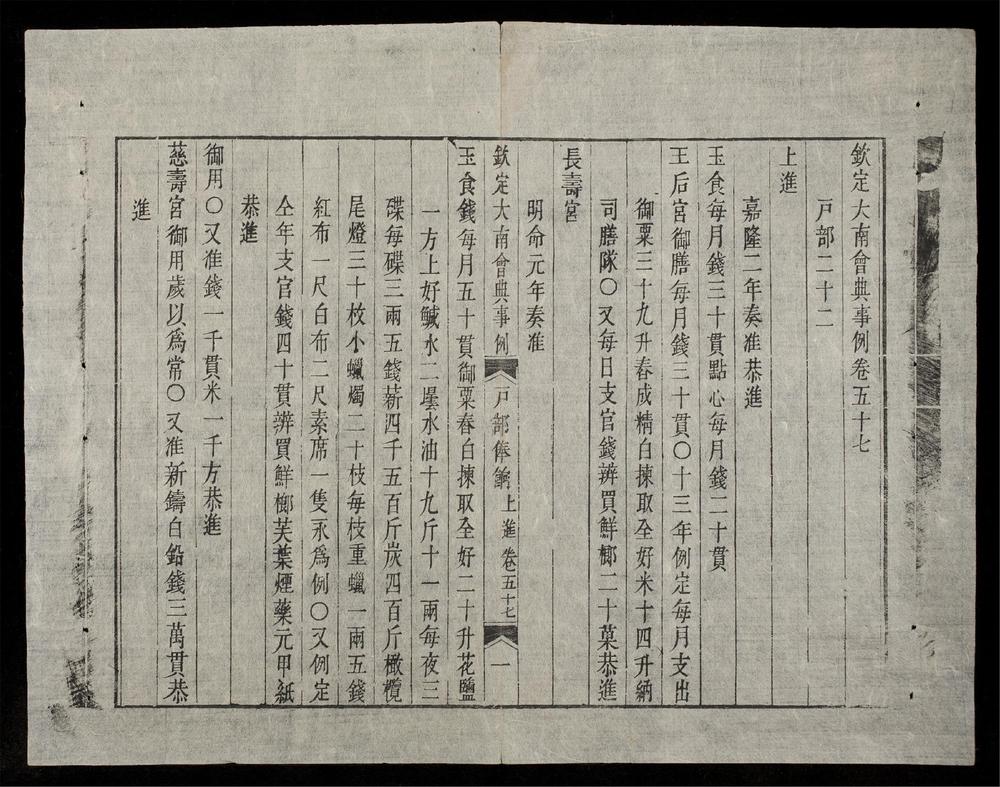 欽定大南會典事例卷五十七
戸部二十二
上進
嘉隆二年奏准恭進
玉食每月錢三十貫點心每月錢二十貫
王后宮御膳每月錢三十貫〇十三年例定每月支出
御粟三十九升舂成精白揀取全好米十四升納
司膳隊〇又每日支官錢辨買鮮榔二十菓恭進
長壽宮
明命元年奏准
欽定大南會典事例 戸部俸餉 上進 卷五十七 一
玉食錢每月五十貫御粟舂白揀取全好二十升花鹽
一方上好鹹水二曇水油十九斤十一兩每夜三
碟每碟三兩五錢薪四千五百斤炭四百斤橄欖
尾燈三十枚小蠟燭二十枝每枝重蠟一兩五錢
紅布一尺白布二尺素席一隻永爲例〇又例定
仝年支官錢四十貫辨買鮮榔芙葉煙藥元甲紙
恭進
御用〇又准錢一千貫米一千方恭進
慈壽宮御用歲以爲常〇又准新鑄白鉛錢三萬貫恭
進